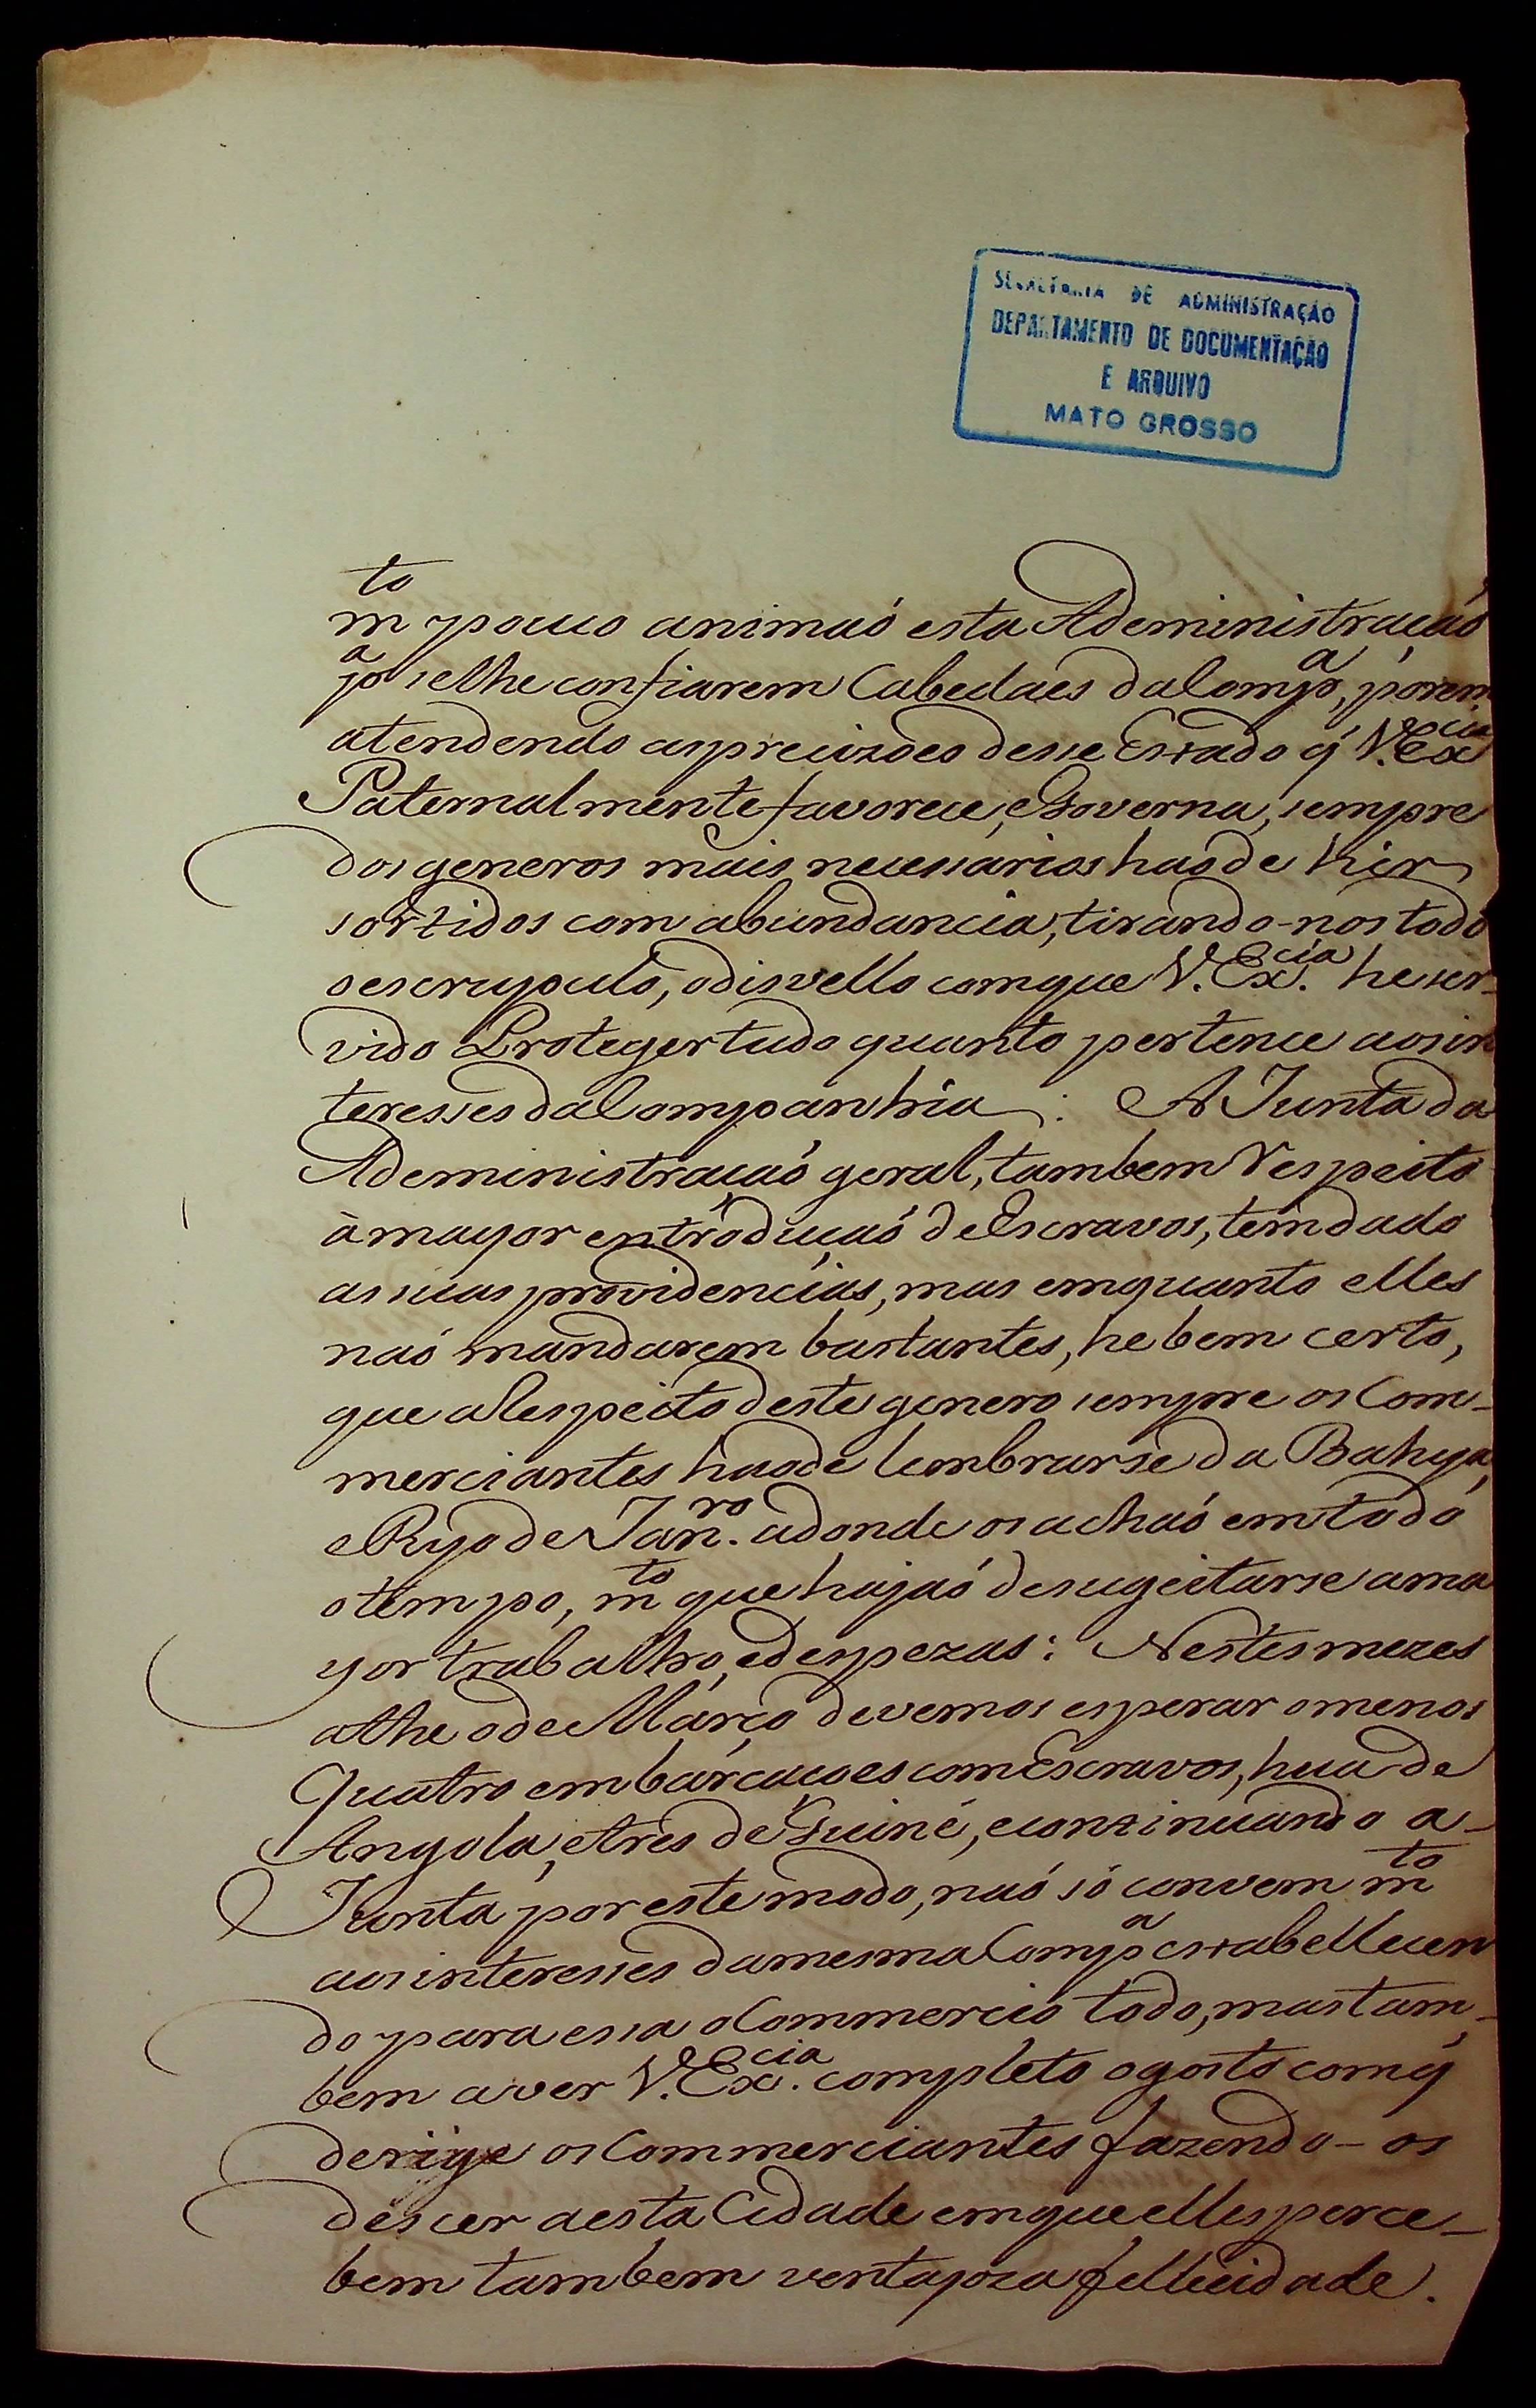 SECRETARIA DE ADMINISTRAÇÃO
DEPARTAMENTO DE DOCUMENTAÇÃO
E ARQUIVO
MATO GROSSO
m.to pouco animaó esta Adeministraçaó
p.a selhe confiarem Cabedaes da Comp.a, porem
atendendo as precizoes desse Estado q' V. Ex.cia
Paternalmente favorece, e Governa, sempre
dos generos mais necessarios haode hir
sortidos com abundancia, tirando-nos todo
o escrupulo, o disvello com que V. Ex.cia he ser-
vido Proteger tudo quanto pertence aos in
teresses da Companhia: A Junta da
Adeministraçaó geral, tambem Respeito
à mayor entroduçaó de Escravos, tem dado
as suas providencias, mas emquanto elles
naó mandarem bastantes, he bem certo,
que a Respeito deste genero sempre os Com-
merciantes haode lembrarse da Bahya,
e Ryo de Jan.ro adonde os achaó em todo
o tempo, m.to que hajaó de sugeitarse a ma
yor trabalho, e despezas: Nestes mezes
athe o de Março devemos esperar o menos
Quatro embarcaçoes com Escravos, hua de
Angola, e tres de Guiné, e continuando a-
Junta por este modo, naó só convem m.to
aos interesses da mesma Comp.a estabellecen
do para essa o Commercio todo, mas tam-
bem a ver V. Ex.cia completo o gosto com q'
derige os Commerciantes fazendo-os
descer a esta Cidade em que elles perce-
bem tambem ventajoza fellicidade.